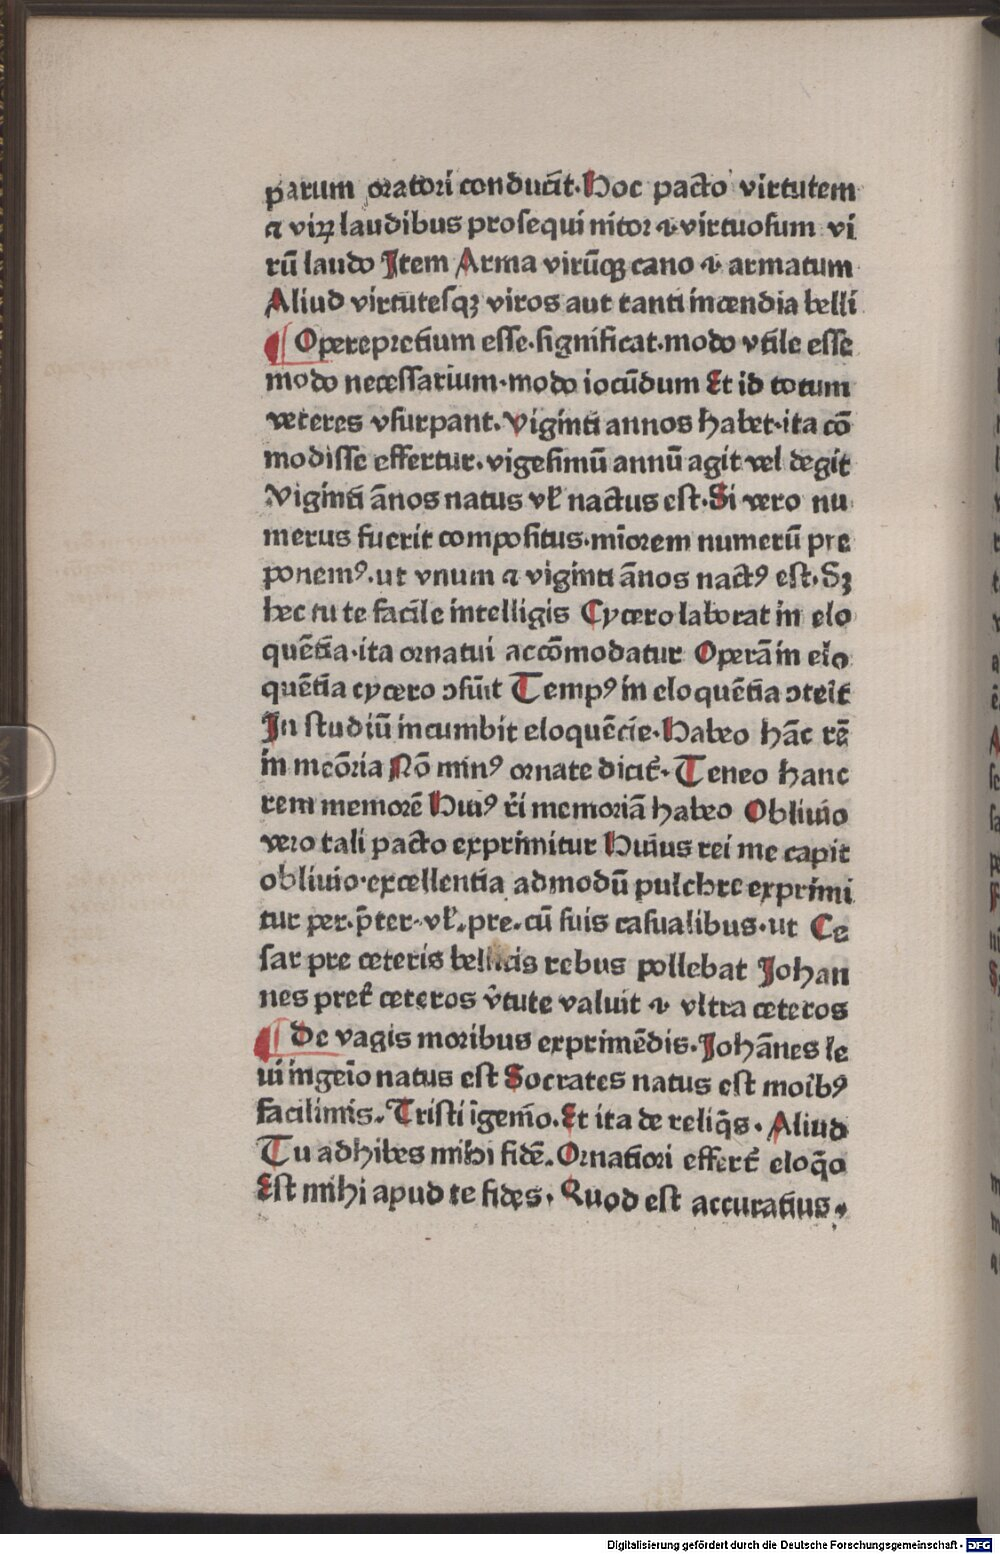 parum oratori conducūt. Hoc pacto virtutem
⁊ viꝝ laudibus prosequi nitor ⁊ virtuosum vi
rū laudo Item Arma virūqꝫ cano ⁊ armatum
Aliud virtutesqꝫ viros aut tanti incendia belli
¶ Operepretium esse. significat. modo vtile esse
modo necessarium. modo iocūdum Et id totum
veteres vsurpant. Viginti annos habet. ita cō
modisse effertur. vigesimū annū agit vel degit
Viginti ānos natus vł nactus est. Si vero nu
merus fuerit compositus. mīorem numerū pre
ponemꝰ. ut vnum ⁊ viginti ānos nactꝰ est. Sꝫ
hec tu te facile intelligis Cycero laborat in elo
quētia. ita ornatui accōmodatur Operā in elo
quētia cycero ↄsūit Tempꝰ in eloquētia ↄterit̄
In studiū incumbit eloquēcie. Habeo hāc rē
in meōria Nō minꝰ ornate dicit̄. Teneo hanc
rem memorē Huiꝰ rei memoriā habeo Obliuio
vero tali pacto exprimitur Huius rei me capit
obliuio. excellentia admodū pulchre exprimi
tur per. p̄ter. vł. pre. cū suis casualibus. ut Ce
sar pre ceteris bellicis rebus pollebat Johan
nes pret̄ ceteros v̄tute valuit ⁊ vltra ceteros
¶ De vagis moribus exprimēdis. Johānes le
ui ingeīo natus est Socrates natus est moībꝰ
facilimis. Tristi īgenīo. Et ita de reliq̄s. Aliud
Tu adhibes mihi fidē. Ornatiori effert̄ eloq̄o
Est mihi apud te fides. Quod est accuratius.
Digitalisierung gefördert durch die Deutsche Forschungsgemeinschaft - DFG